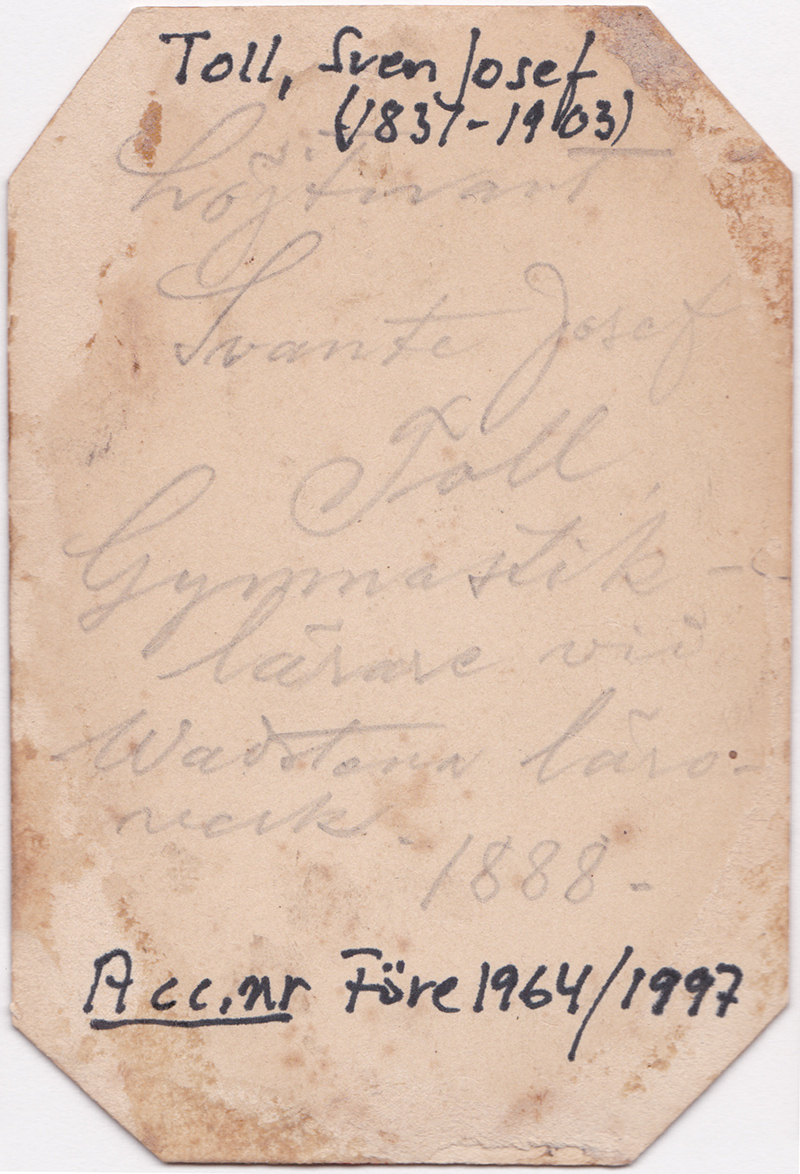 Toll, Sven Josef
(1837-1903)
Löjtnant
Svante Josef
Toll,
Gymnastik-
lärare vid
Wadstena läro-
verk.
1888-
Acc.nr Före 1964/1997